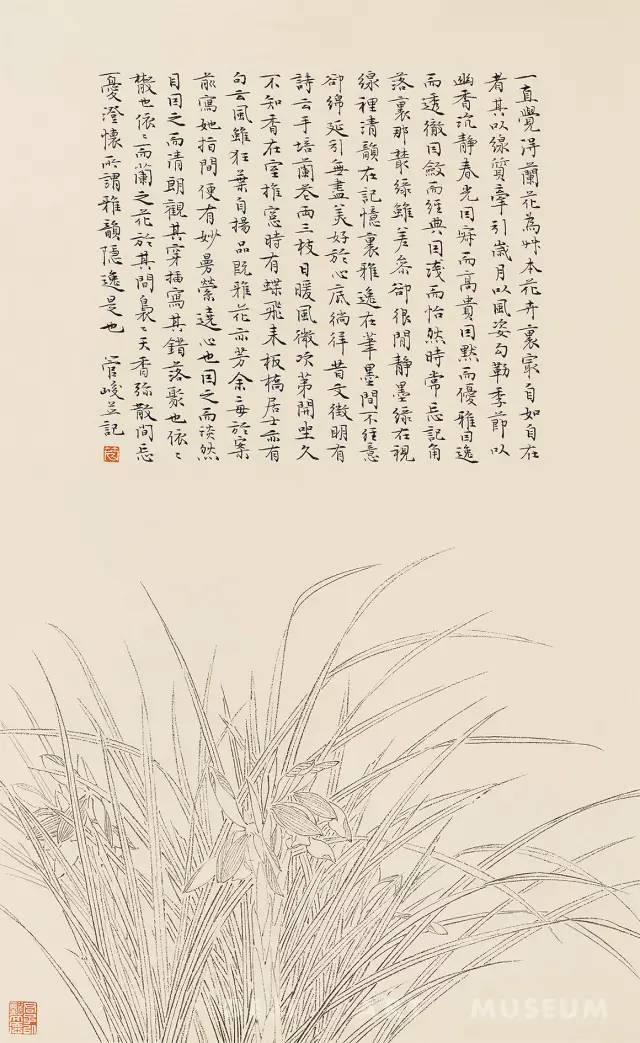 一直覺得蘭花為艸本花卉裏最自如自在
者其以線質牽引歲月以風姿勾勒季節以
幽香沉靜春光因寂而高貴因默而優雅因逸
而透徹因斂而經典因淺而怡然時常忘記角
落裏那叢綠雖差參卻很閒靜墨綠在視
線裡清韻在記憶裏雅逸在筆墨間不經意
卻綿延引無盡美好於心底徜徉昔文徵明有
詩云手培蘭蕊兩三枝日暖風微次第開坐久
不知香在室推窗時有蝶飛來板橋居士亦有
句云風雖狂葉自揚品既雅花亦芳余每於案
前寫她指間便有妙曼縈遶心也因之而淡然
目因之而清朗觀其穿插寫其錯落聚也依依
散也依依而蘭之花於其間裊裊天香弥散間忘
憂澄懷所謂雅韻隱逸是也 管峻並記
ART MUSEUM